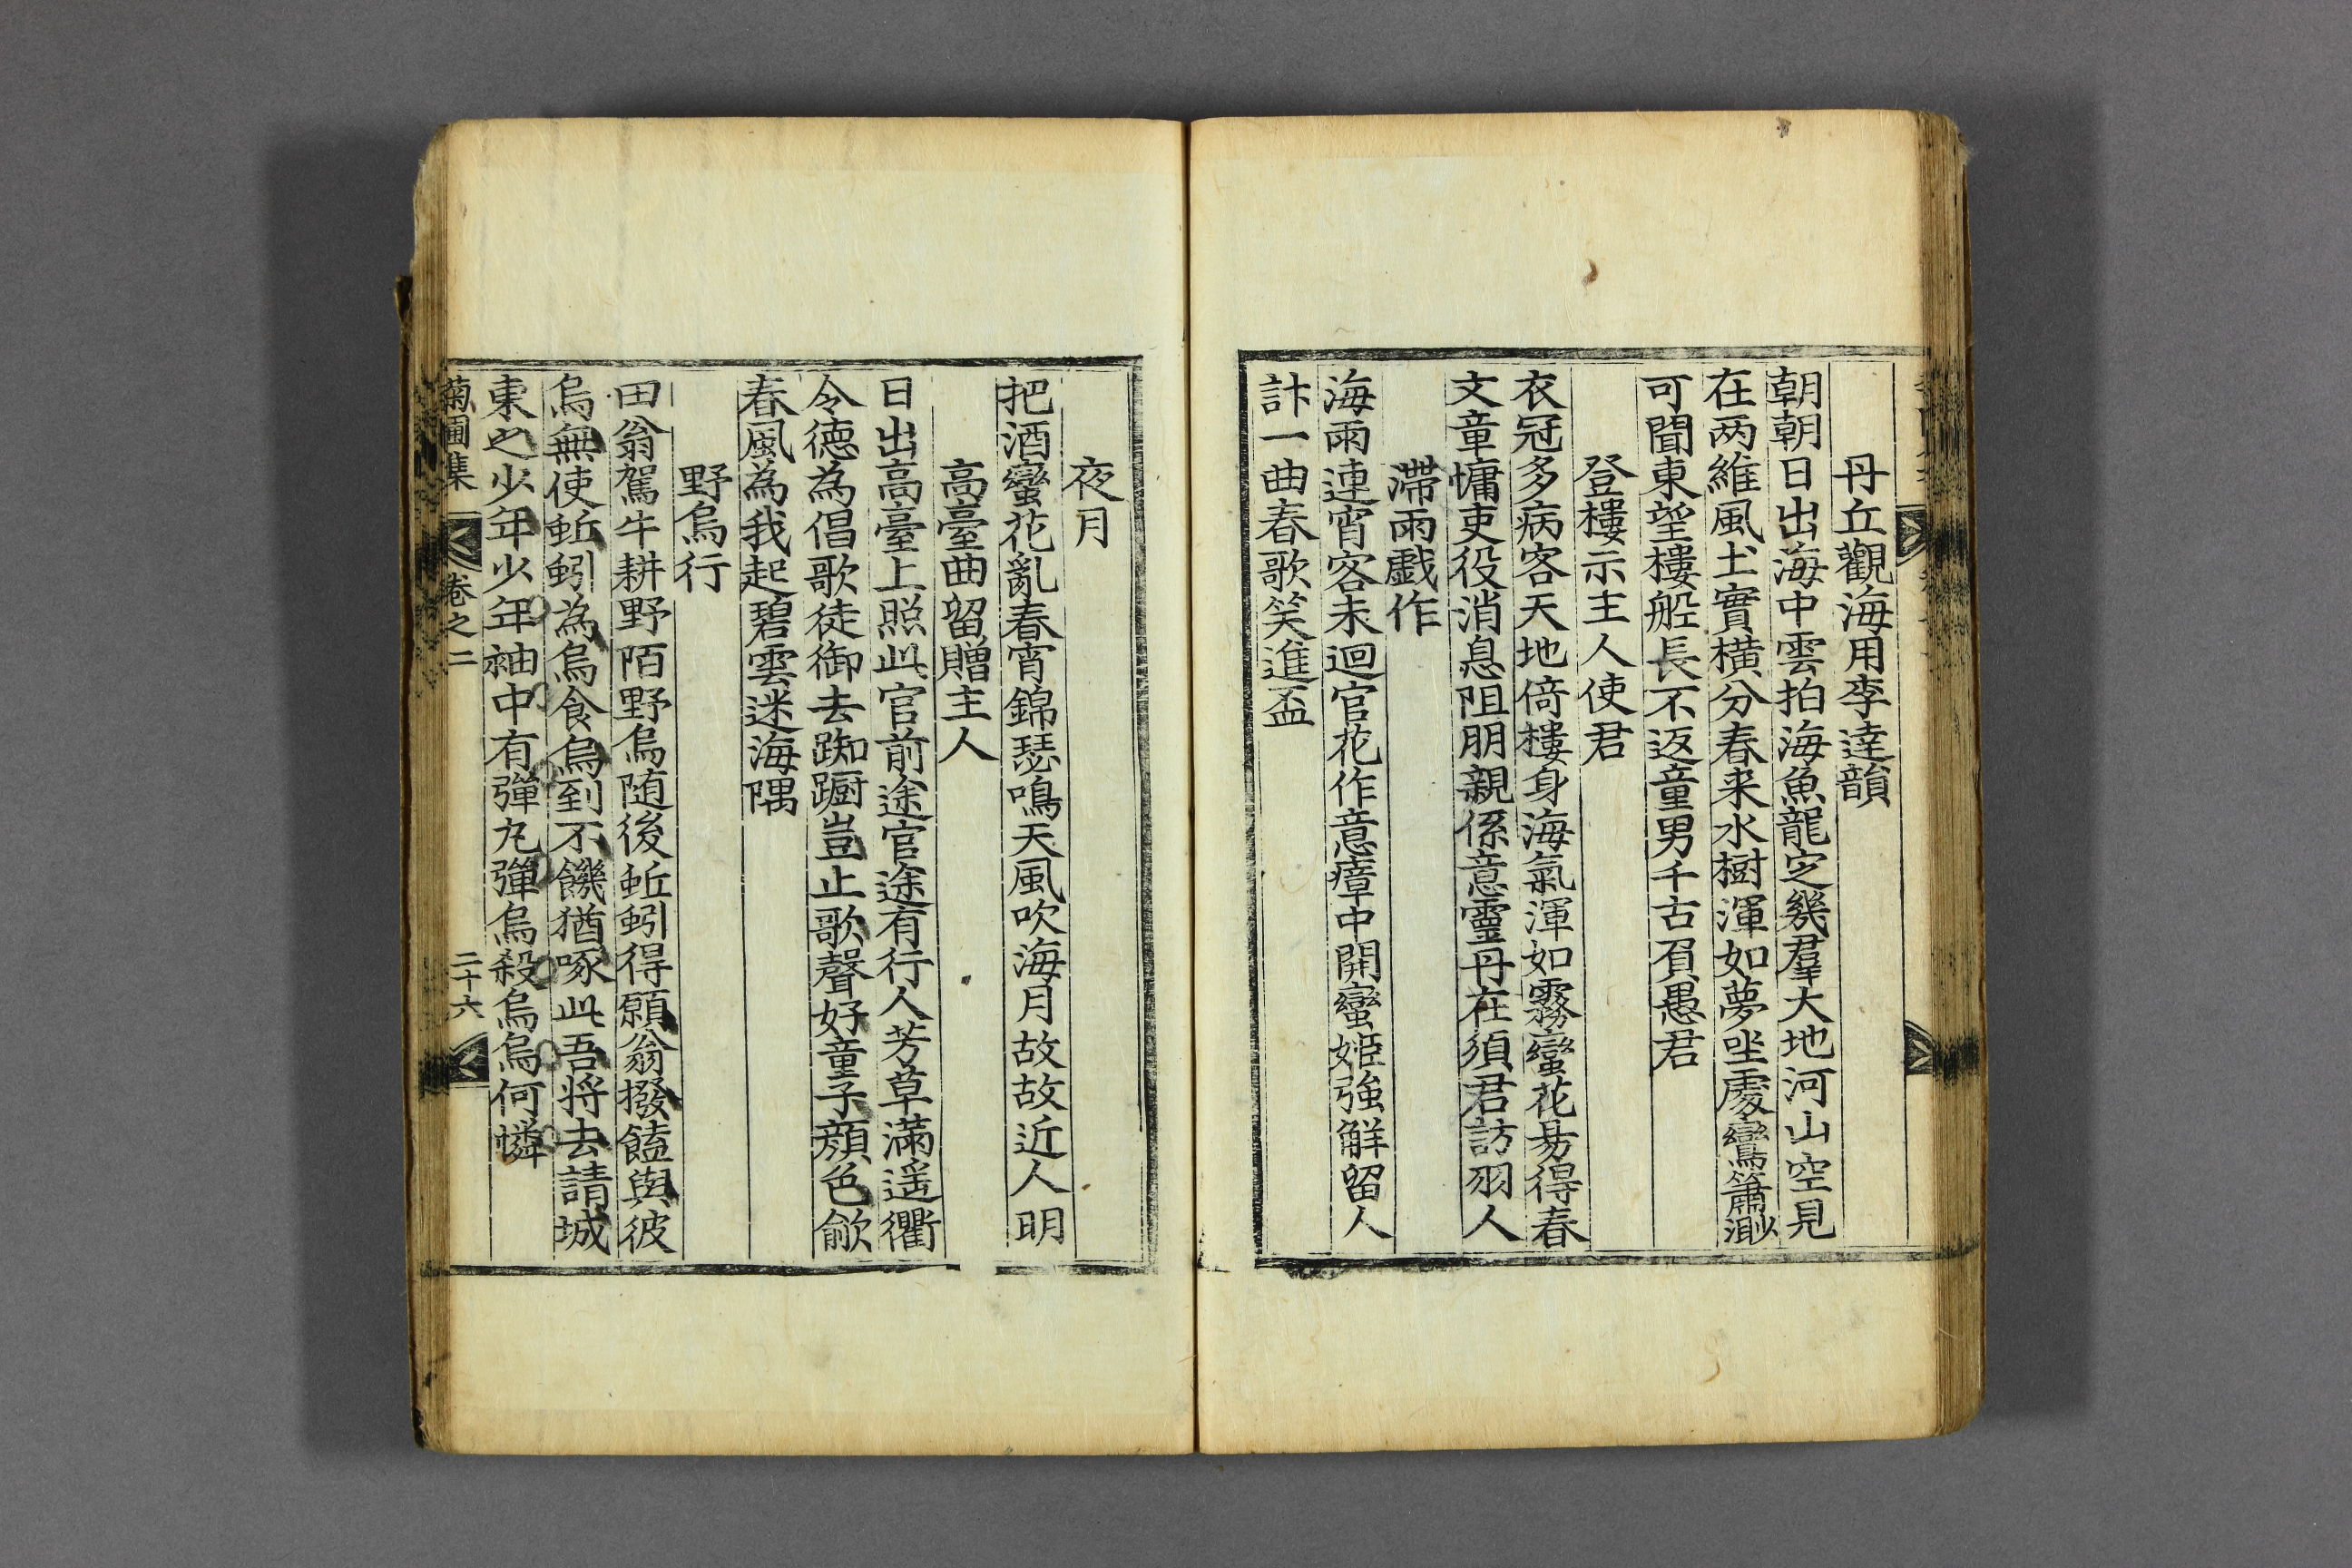 丹丘觀海用李達韻
朝朝日出海中雲拍海魚龍定幾羣大地河山空見
在两維風土實横分春来水樹渾如夢坐處鸞簫渺
可聞東望樓船長不返童男千古負愚君
登樓示主人使君
衣冠多病客天地倚樓身海氣渾如霧蠻花易得春
文章慵吏役消息阻朋親係意靈丹在須君訪羽人
滯雨戲作
海雨連宵客未迴官花作意瘴中開蠻姫強解留人
計一曲春歌笑進盃
夜月
把酒蠻花亂春宵錦瑟鳴天風吹海月故故近人明
高臺曲留贈主人
日出高臺上照此官前途官途有行人芳草滿遥衢
令德為倡歌徒御去踟躕豈止歌聲好童子顔色歈
春風為我起碧雲迷海隅
野烏行
田翁駕牛耕野陌野烏随後蚯蚓得願翁撥饁與彼
烏無使蚯蚓為烏食烏到不饑猶啄此吾将去請城
東之少年少年袖中有彈丸彈烏殺烏烏何憐
菊圃集 卷之二 二十六